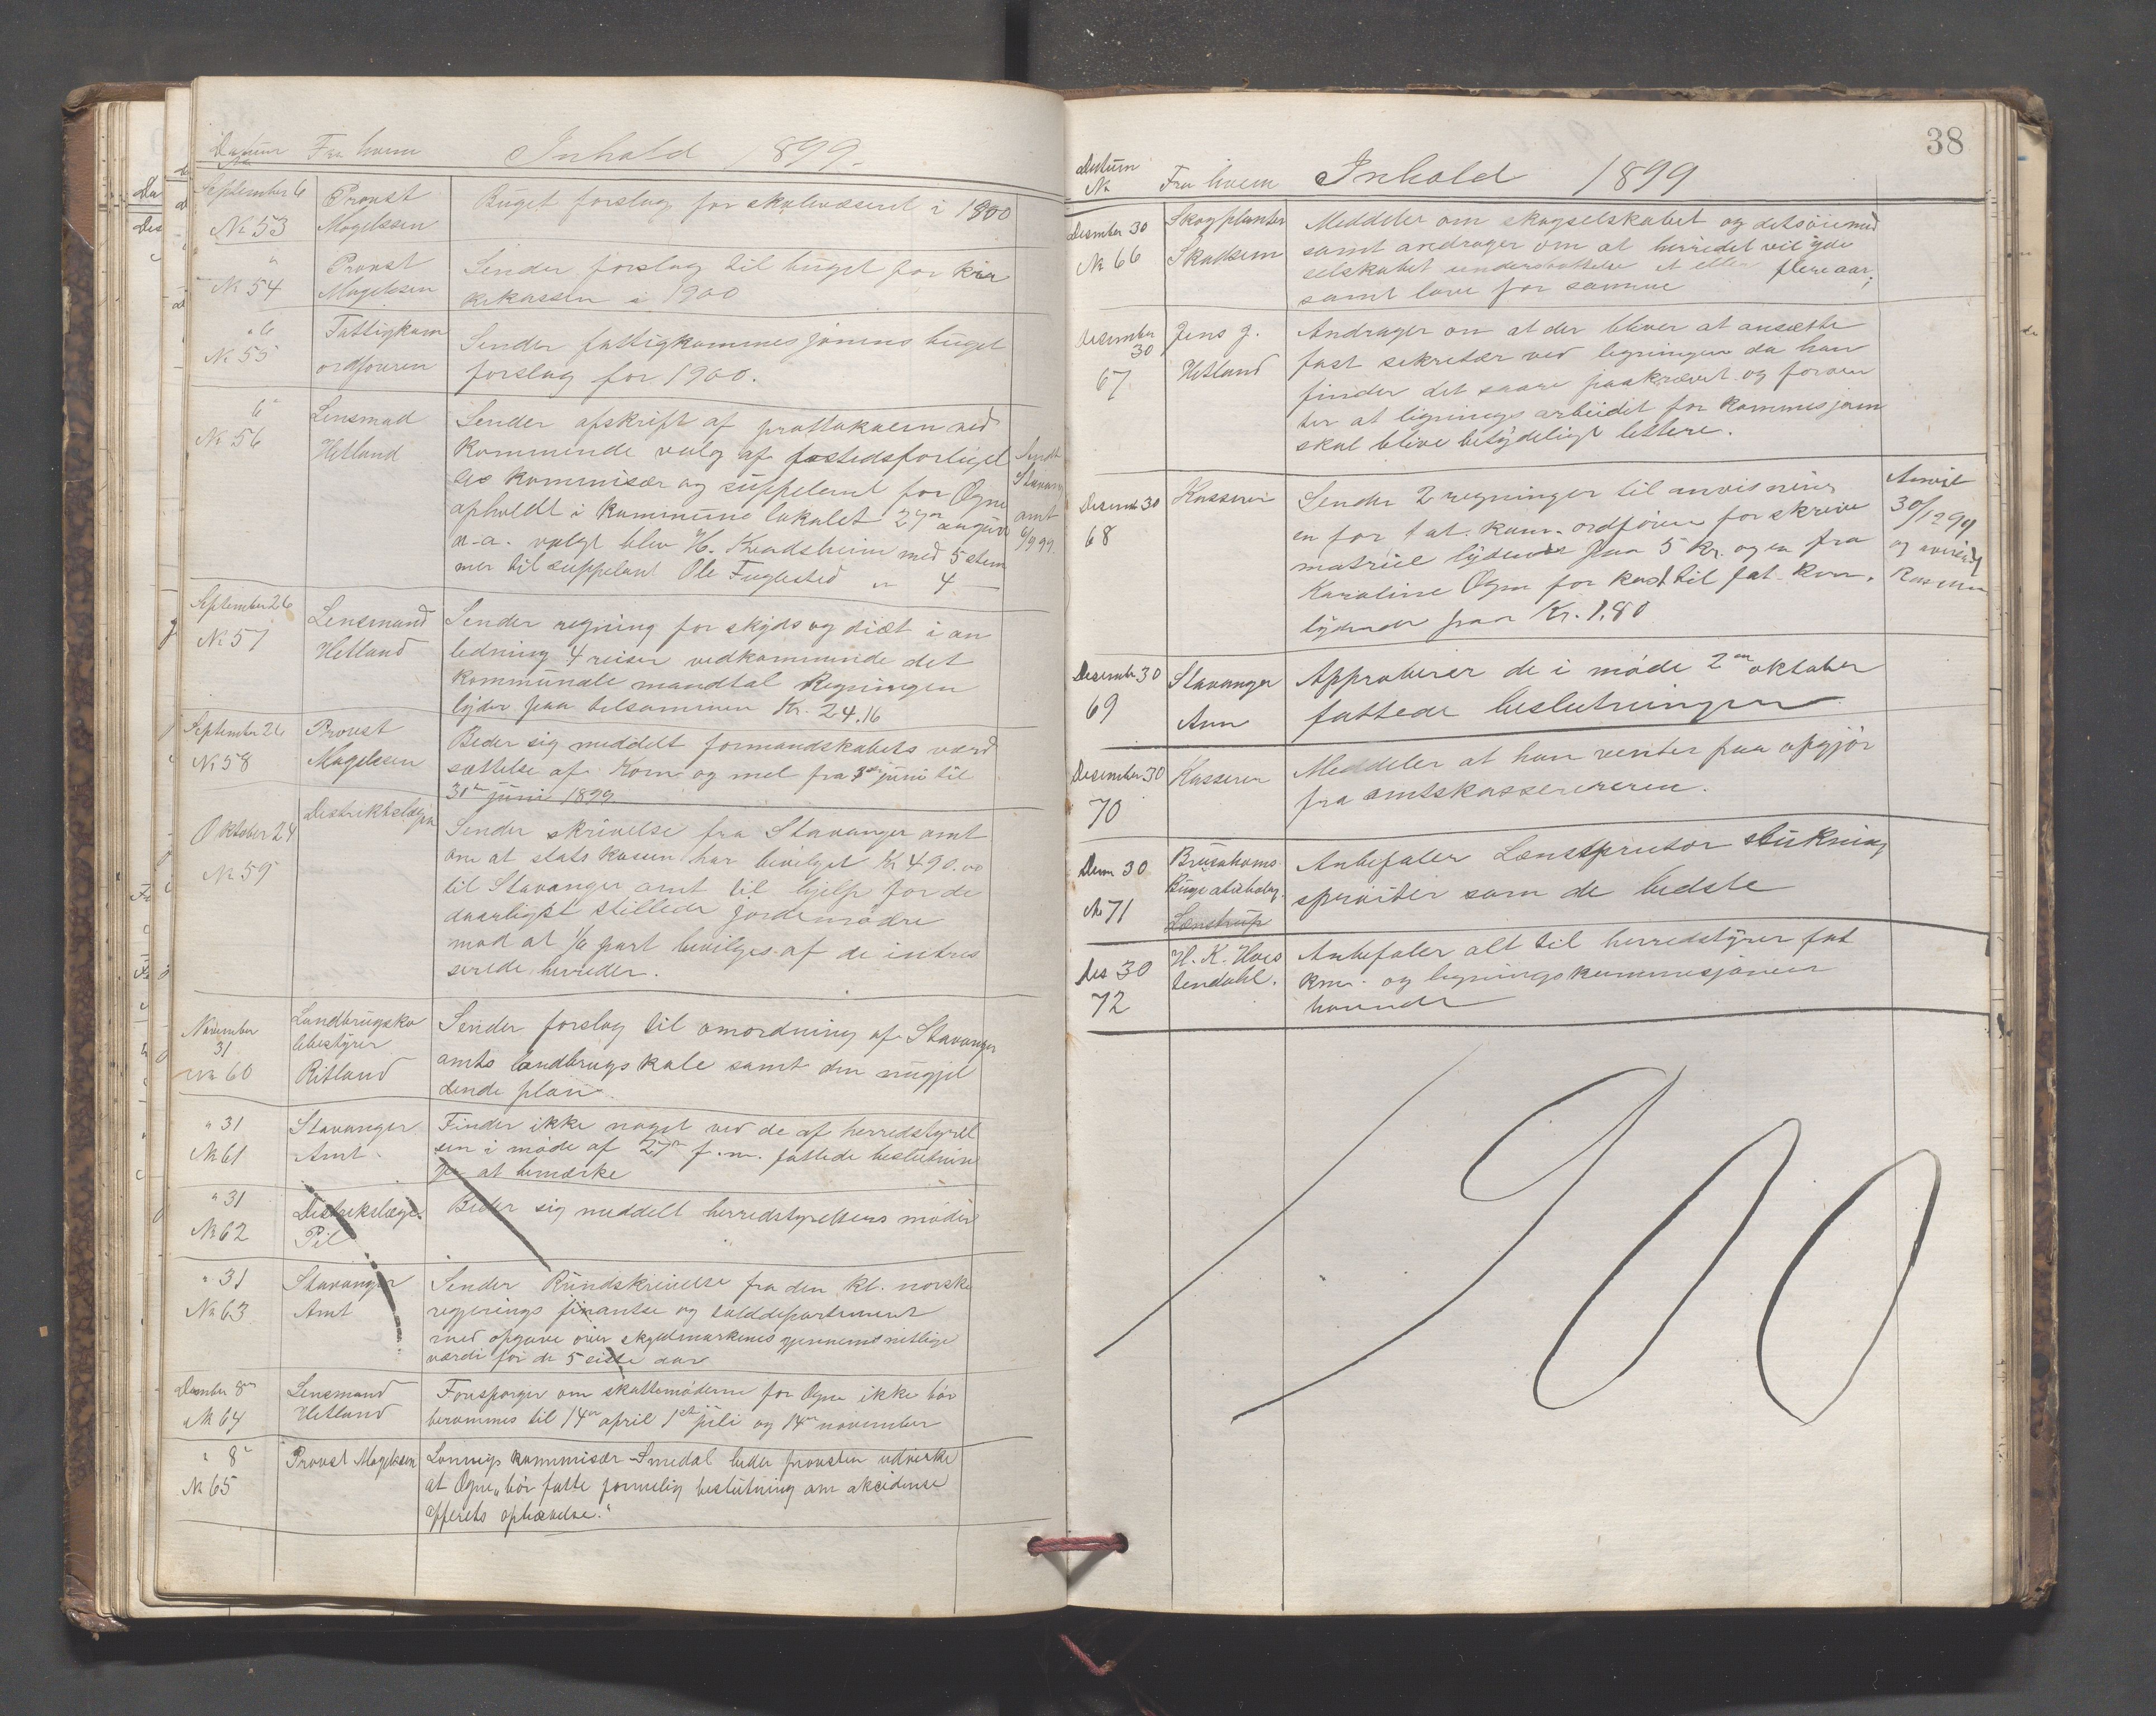 Datum
No
Fra hvem
Inhold 1899.
September 6
No 53
Provst
Mogelssen
Buget forslag for skolevæsenet i 1900
"
No 54
Provst
Mogelssen
Sender forslag til buget for kir
kekassen i 1900
" 6
No 55
Fattigkom
ordføreren
Sender fattigkommesjonens buget
forslag for 1900.
6"
No 56
Lensmad
Hetland
Sender afskrift af prottokolen ved
kommende valg af
kommisær og suppelent for Ogne
apholdt i kommune lokalet 27de august
n.a. valgt blev H. Kvadsheim med 5 stem
mer til suppelant Ole Fuglested " 4 —
Sendt
Stavang
amt
6/9 99.
September 26
No 57
Lensmand
Hetland
Sender regning for skyds og diæt i an
ledning 4 reiser vedkommende det
kommunale mandtal Regningen
lyder paa tilsammen Kr. 24,16
September 26
No 58
Provst
Mogelssen
Beder sig meddelt formandskabets værd
sættelse af Korn og mel fra juni til
31te juni 1899
Oktober 24
No 59
Destriktslægen
Sender skrivelse fra Stavanger amt
om at stats kassen har bevilget Kr 490.00
til Stavanger amt til hjelp for de
daarligst stillede jordemødre
mod at part bevilges af de intres
serede herreder.
November
31
No 60
Landbrugsko
lebestyrer
Ritland
Sender forslag til omordning af Stavanger
amts landbrugskole samt den nugjel
dende plan.
" 31
No 61
Stavanger
Amt.
Finder ikke noget ved de af herredstyrel
sen i møde af 27de f.m. fattede beslutnin
ger at bemærke
" 31
No 62
Distrikslæge
Pil
Beder sig meddelt herredstyrelsens møder
" 31
No 63
Stavanger
Amt
Sender Rundskrivelse fra den kl. norske
regjerings finantse og tolddepartement
med opgave over skyldmarkenes gjennemsnitlige
værdi for de 5 siste aar
Desember 8de
No 64
Lensmand
Hetland
Forespørger om skattemøderne for Ogne ikke bør
berammes til 14de april 1ste juli og 14de november
" 8"
No 65
Provst Mogelssen
Lønnings kommisær Smedal beder provsten udvirke
at Ogne „bør fatte formelig beslutning om aksidense
offerets ophævelse."
38
Datum
No
Fra hvem
Inhold 1899
Desember 30
No 66
Skogplanter
Skadsem
Meddeler om skogselskabet og detsøiemed
samt andrager om at herredet vil yde
selskabet understøttelse et eller flere aar,
samt love for samme
Desember
30
67
Jens J.
Hetland
Andrager om at der bliver at ansætte
fast sekretær ved ligningen da han
finder det saare paakrævet og forven
ter at lignings arbeidet for kommesjonen
skal blive betydeligt lettere.
Desemb 30
68
Kasserer
Sender 2 regninger til anvisning
en for fat. kom. ordfører for skrive
matriel lydende paa 5 kr. og en fra
Karoline Ogne for kost til fat. kom.
lydende paa Kr. 1,80
Anvist
30/12 99
og
Desember 30
69
Stavanger
Amt
Approberer de i møde 2den oktober
fattede beslutninger
Desember 30
70
Kasserer
Meddeler at han venter paa opgjør
fra amtskassereren.
Desem 30
No 71
Lænstrup
Anbefaler
sprøiter som de bedste
des 30
72
Anbefaler alt til herredstyrer fat
kom. og ligningskommesjoner
hørende
1900